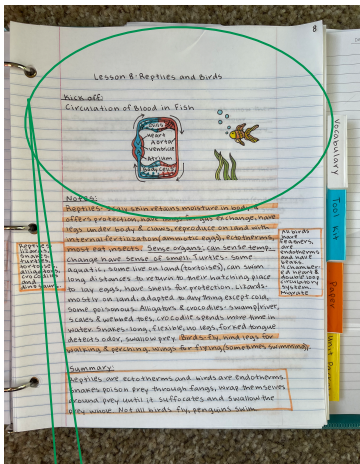 8
Lesson 8: Reptiles and Birds
Kick off:
Circulation of Blood in Fish
Gills
Heart
Aorta
Ventricle
Atrium
Notes:
Reptiles- scaly skin retains moisture in body &
offers protection, have lungs for gas exchange, have
legs under body & claws, reproduce on land with
internal fertilization (amniotic eggs), ectotherms,
most eat insects. Sense organs: can sense temp.
change, have sense of smell. Turtles: some
aquatic, some live on land (tortoises), can swim
long distances to return to their hatching place
to lay eggs, have shells for protection. Lizards:
mostly on land, adapted to anything except cold,
some poisonous. Alligators & crocodiles: swamp/river,
scales & webbed toes, crocodile spends more time in
water. Snakes: long, flexible, no legs, forked tongue
detects odor, swallow prey. Birds: fly, hind legs for
walking & perching, wings for flying (sometimes swimming).
Reptiles:
lizards,
snakes,
turtles,
tortoises,
alligators,
crocodiles
and
dinosaurs
All birds
have
feathers,
are
endotherms
and have
beaks.
4 chamber-
ed heart &
double loop
circulatory
system.
Migrate
Summary:
Reptiles are ectotherms and birds are endotherms.
Snakes poison prey through fangs, wrap themselves
around prey until it suffocates and swallow the
prey whole. Not all birds fly, penguins swim.
Vocabulary
Tool Kit
Paper